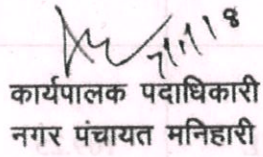 7/1/18
कार्यपालक पदाधिकारी
नगर पंचायत मनिहारी